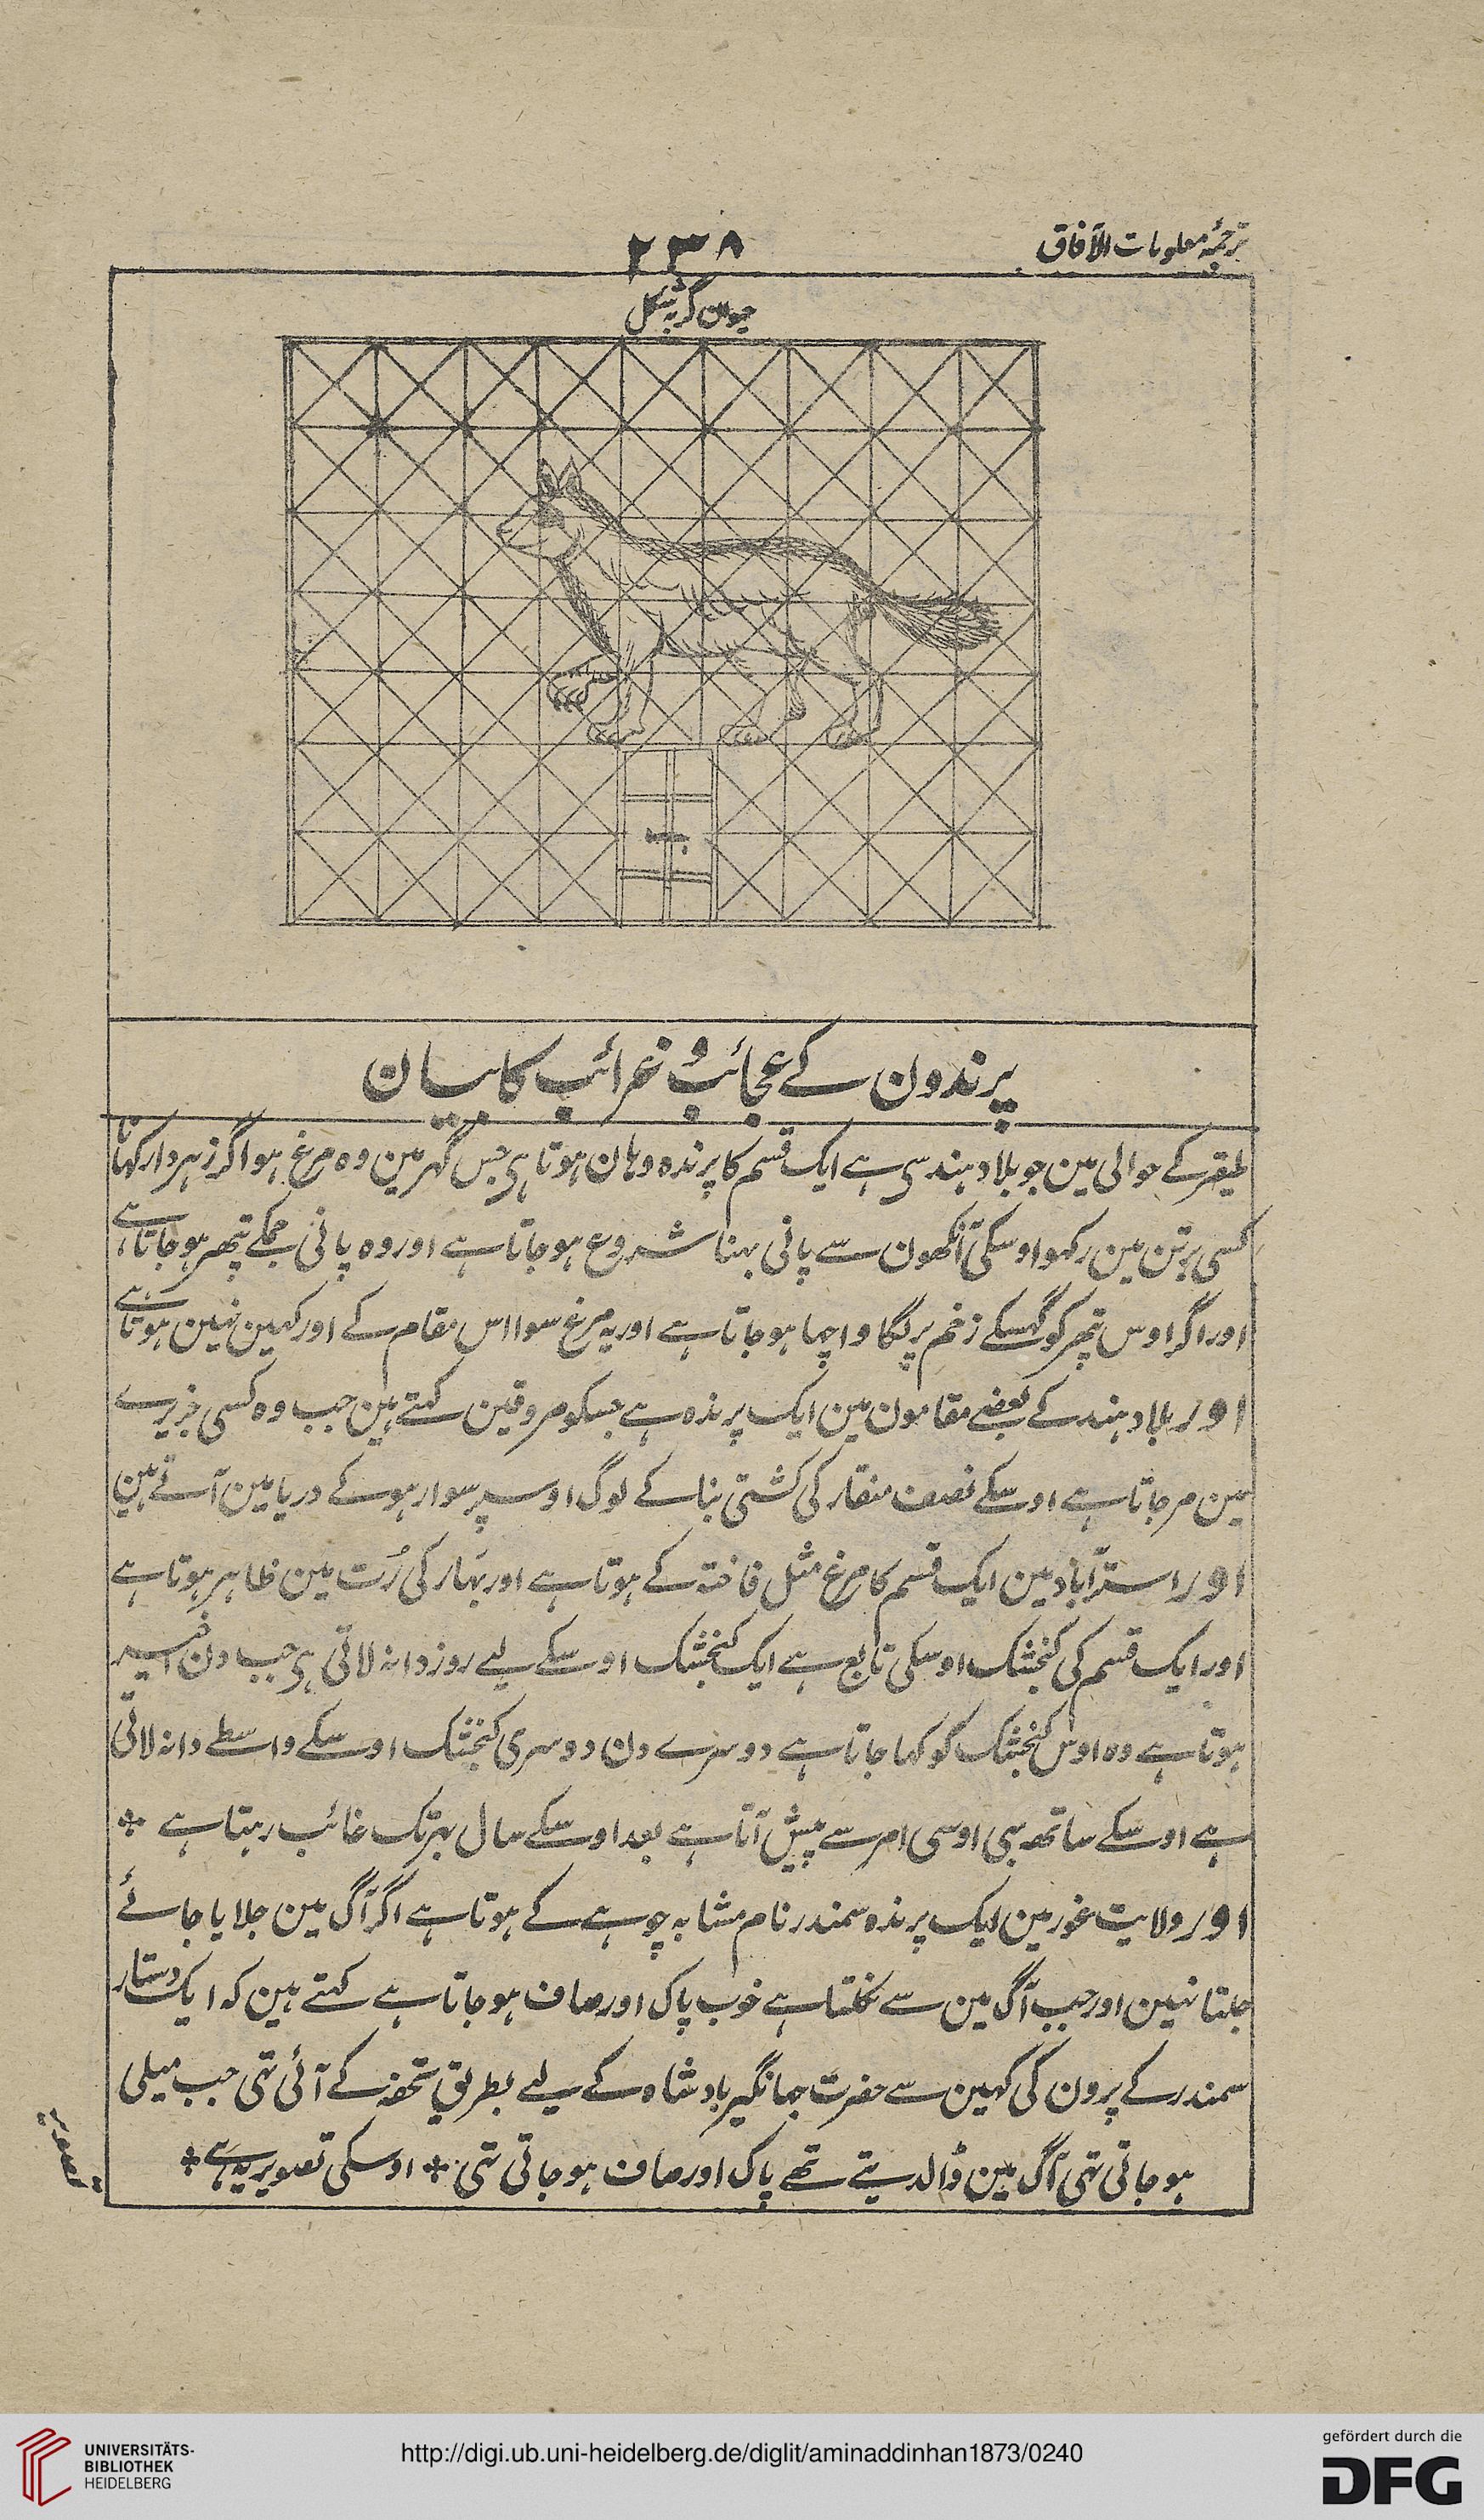 ترجمۂ معلومات الآفاق
۲۳۸
حیوان گربہ شکل
پرندون کے عجائب و غرائب کا بیان
لیقر کے حوالی مین جو بلاد ہند سی ہے ایک قسم کا پرندہ وہان ہوتا ہی جس گھر مین وہ مرغ ہو اگر زہردار کہانا
کسی برتن مین رکہو اوسکی آنکھون سے پانی بہنا شروع ہو جاتا ہے اور وہ پانی جمکے پتھر ہو جاتا ہے
اور اگر اوس پتھر کو گہسکے زخم پر لگاو اچہا ہو جاتا ہے اور یہ مرغ سوا اس مقام کے اور کہین نہین ہوتا ہے
اور بلاد ہند کے بعضے مقامون مین ایک پرندہ ہے جسکو مروقین کہتے ہین جب وہ کسی جزیرے
مین مر جاتا ہے اوسکے نصف منقار کی کشتی بنا کے لوگ اوسپر سوار ہو کے دریا مین آتے ہین
اور استرآباد مین ایک قسم کا مرغ مثل فاختہ کے ہوتا ہے اور بہار کی رُت مین ظاہر ہوتا ہے
اور ایک قسم کی کنجشک اوسکی تابع ہے ایک کنجشک اوسکے لیے روز دانہ لاتی ہی جب دن اخیر
ہوتا ہے وہ اوس کنجشک کو کہا جاتا ہے دوسرے دن دوسری کنجشک اوسکے واسطے دانہ لاتی
ہے اوسکے ساتھ بہی اوسی امر سے پیش آتا ہے بعد اوسکے سال بہر تک غائب رہتا ہے *
اور ولایت غور مین ایک پرندہ سمندر نام مشابہ چوہے کے ہوتا ہے اگر آگ مین جلایا جائے
جلتا نہین اور جب آگ مین سے نکلتا ہے خوب پاک اور صاف ہو جاتا ہے کہتے ہین کہ ایک دستار
سمندر کے پرون کی کہین سے حضرت جہانگیر بادشاہ کے لیے بطریق تحفہ کے آئی تہی جب میلی
ہو جاتی تہی آگ مین ڈالدیتے تھے پاک اور صاف ہو جاتی تہی * اوسکی تصویر یہ ہے *
UNIVERSITÄTS-
BIBLIOTHEK
HEIDELBERG
http://digi.ub.uni-heidelberg.de/diglit/aminaddinhan1873/0240
gefördert durch die
DFG